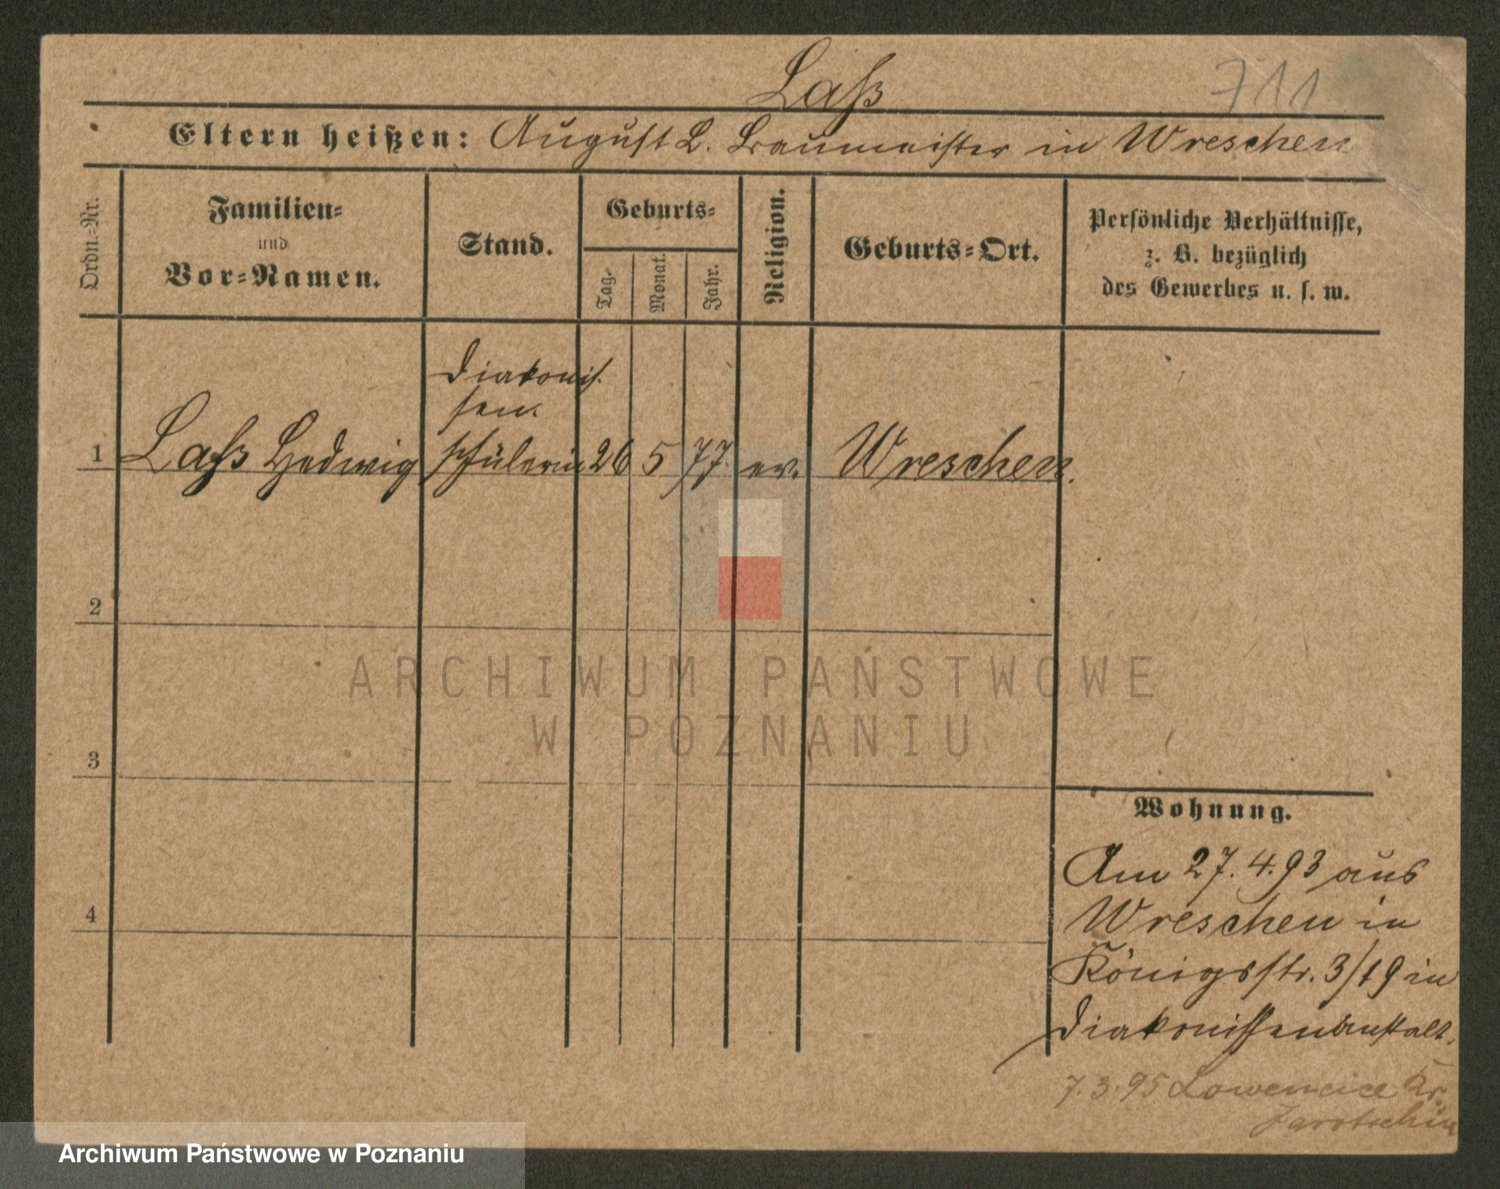 Laß
711
Eltern heißen: August L. Baumeister in Wreschen
Ordn.=Nr.
Familien=
und
Vor=Namen.
Stand.
Geburts=
Tag-
Monat.
Jahr.
Religion.
Geburts=Ort.
Persönliche Verhältnisse,
z. B. bezüglich
des Gewerbes u. s. w.
Diakonis-
sen-
1 Laß Hedwig schülerin 26 5 77 ev. Wreschen.
2
3
4
Wohnung.
Am 27. 4. 93 aus
Wreschen in
Königsstr. 3/19 in
Diakonissenanstalt.
7. 3. 95 Lowencice Kr.
Jarotschin
ARCHIWUM PAŃSTWOWE
W POZNANIU
Archiwum Państwowe w Poznaniu